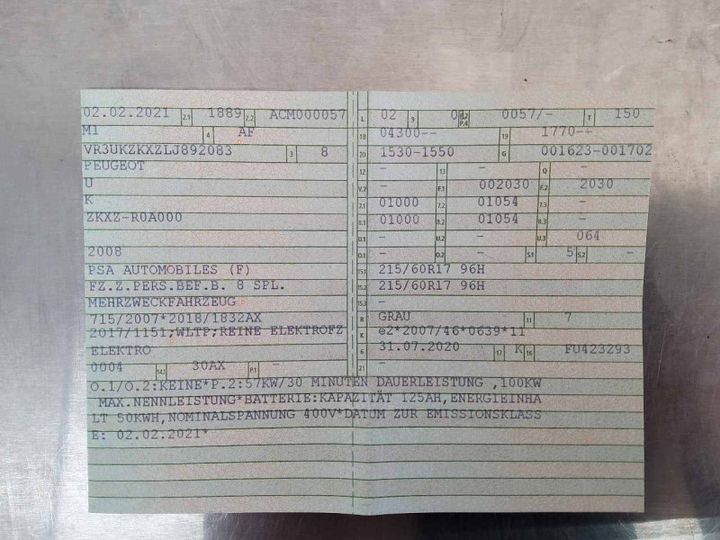 02.02.2021 2.1 1889 2.2 ACM000057 L 02 9 0 P.2 P.4 0057/- T 150
M1 4 AF 18 04300-- 19 1770--
VR3UKZKXZLJ892083 3 8 20 1530-1550 G 001623-001702
PEUGEOT 12 - 13 - Q -
U V.7 - F.1 002030 F.2 2030
K 7.1 01000 7.2 01054 7.3 -
ZKXZ-R0A000 8.1 01000 8.2 01054 8.3 -
U.1 - U.2 - U.3 064
2008 O.1 - O.2 - S.1 5 S.2 -
PSA AUTOMOBILES (F) 15.1 215/60R17 96H
FZ.Z.PERS.BEF.B. 8 SPL. 15.2 215/60R17 96H
MEHRZWECKFAHRZEUG 15.3 -
715/2007*2018/1832AX R GRAU 11 7
2017/1151;WLTP;REINE ELEKTROFZ K e2*2007/46*0639*11
ELEKTRO 6 31.07.2020 17 K 16 FU423293
0004 14.1 30AX P.1 - 21 -
O.1/O.2:KEINE*P.2:57KW/30 MINUTEN DAUERLEISTUNG ,100KW
MAX.NENNLEISTUNG*BATTERIE:KAPAZITÄT 125AH,ENERGIEINHA
LT 50KWH,NOMINALSPANNUNG 400V*DATUM ZUR EMISSIONSKLASS
E: 02.02.2021*